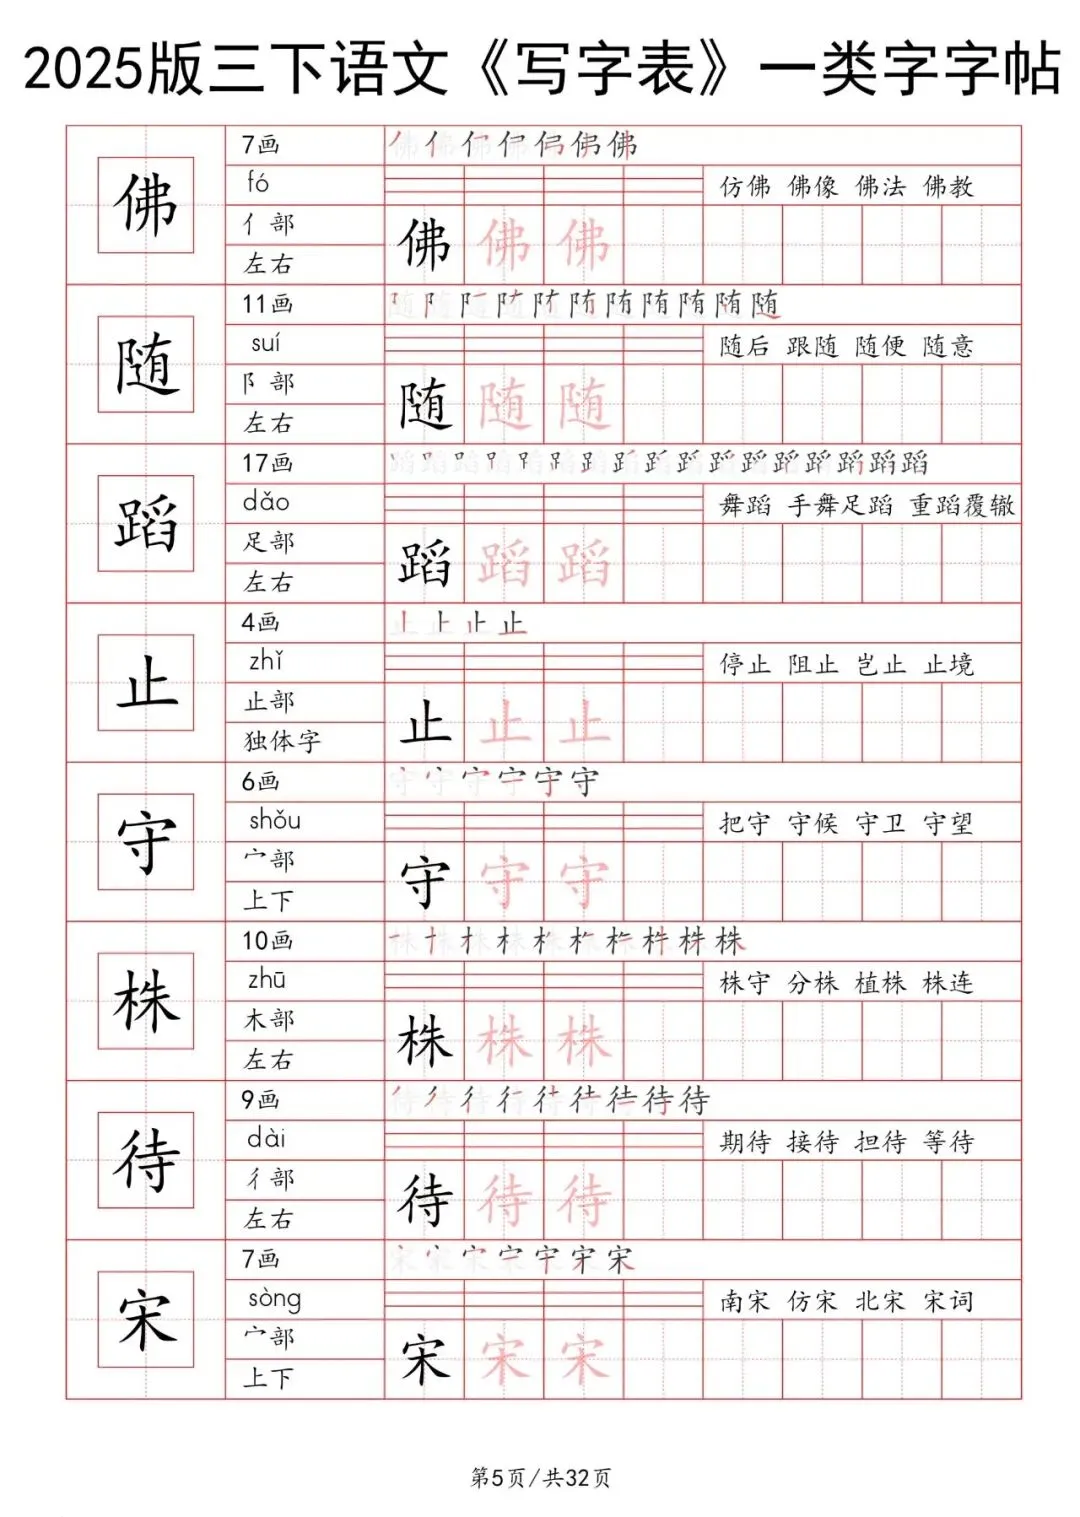 2025版三下语文《写字表》一类字字帖
佛
7画
fó
亻部
左右
仿佛 佛像 佛法 佛教
佛 佛 佛
随
11画
suí
阝部
左右
随后 跟随 随便 随意
随 随 随
蹈
17画
dǎo
足部
左右
舞蹈 手舞足蹈 重蹈覆辙
蹈 蹈 蹈
止
4画
zhǐ
止部
独体字
停止 阻止 岂止 止境
止 止 止
守
6画
shǒu
宀部
上下
把守 守候 守卫 守望
守 守 守
株
10画
zhū
木部
左右
株守 分株 植株 株连
株 株 株
待
9画
dài
彳部
左右
期待 接待 担待 等待
待 待 待
宋
7画
sòng
宀部
上下
南宋 仿宋 北宋 宋词
宋 宋 宋
第5页/共32页